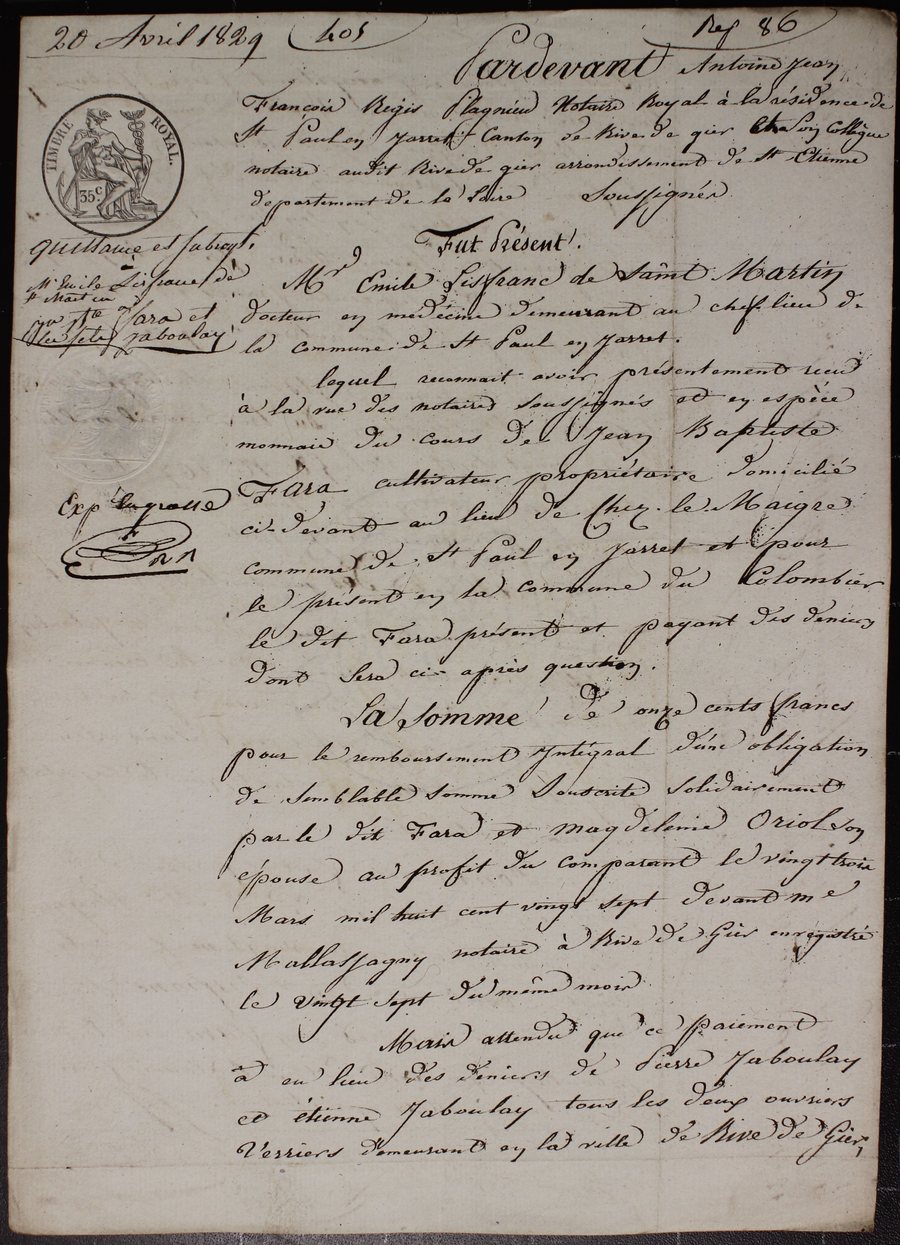 20 Avril 1829
405
Rep 86
TIMBRE ROYAL.
35 C
Quittance et subrog.
Mr Emile Lisfranc de
St Martin
à
Fara et
Jaboulay
Exp en grosse
Pardevant Antoine Jean
François Régis Plagnieu Notaire Royal à la résidence de
St Paul en Jarret Canton de Rive de gier et son Collègue
notaire audit Rive de gier arrondissement de St Etienne
departement de la Loire Soussignés
Fut Présent.
Mrd Emile Lisfranc de Saint Martin
docteur en medécine demeurant au chef lieu de
la commune de St Paul en Jarret.
lequel reconnait avoir présentement recu
à la vue des notaires soussignés et en espèce
monnaie du cours de Jean Baptiste
Fara cultivateur propriétaire domicilié
ci-devant au lieu de Chez le Maigre
commune de St Paul en Jarret et pour
le présent en la commune du Colombier
le dit Fara présent et payant des deniers
dont sera ci après question.
La Somme de onze cents francs
pour le remboursement Intégral d'une obligation
de semblable somme souscrite solidairement
par le dit Fara et magdelenie Oriol son
épouse au profit du comparant le vingt trois
Mars mil huit cent vingt sept devant me
Mallassagny notaire à Rive de Gier enregistré
le vingt sept du même mois
Mais attendu que ce paiement
a eu lieu des deniers de Pierre Jaboulay
et étienne Jaboulay tous les deux ouvriers
Verriers demeurant en la ville de Rive de Gier,